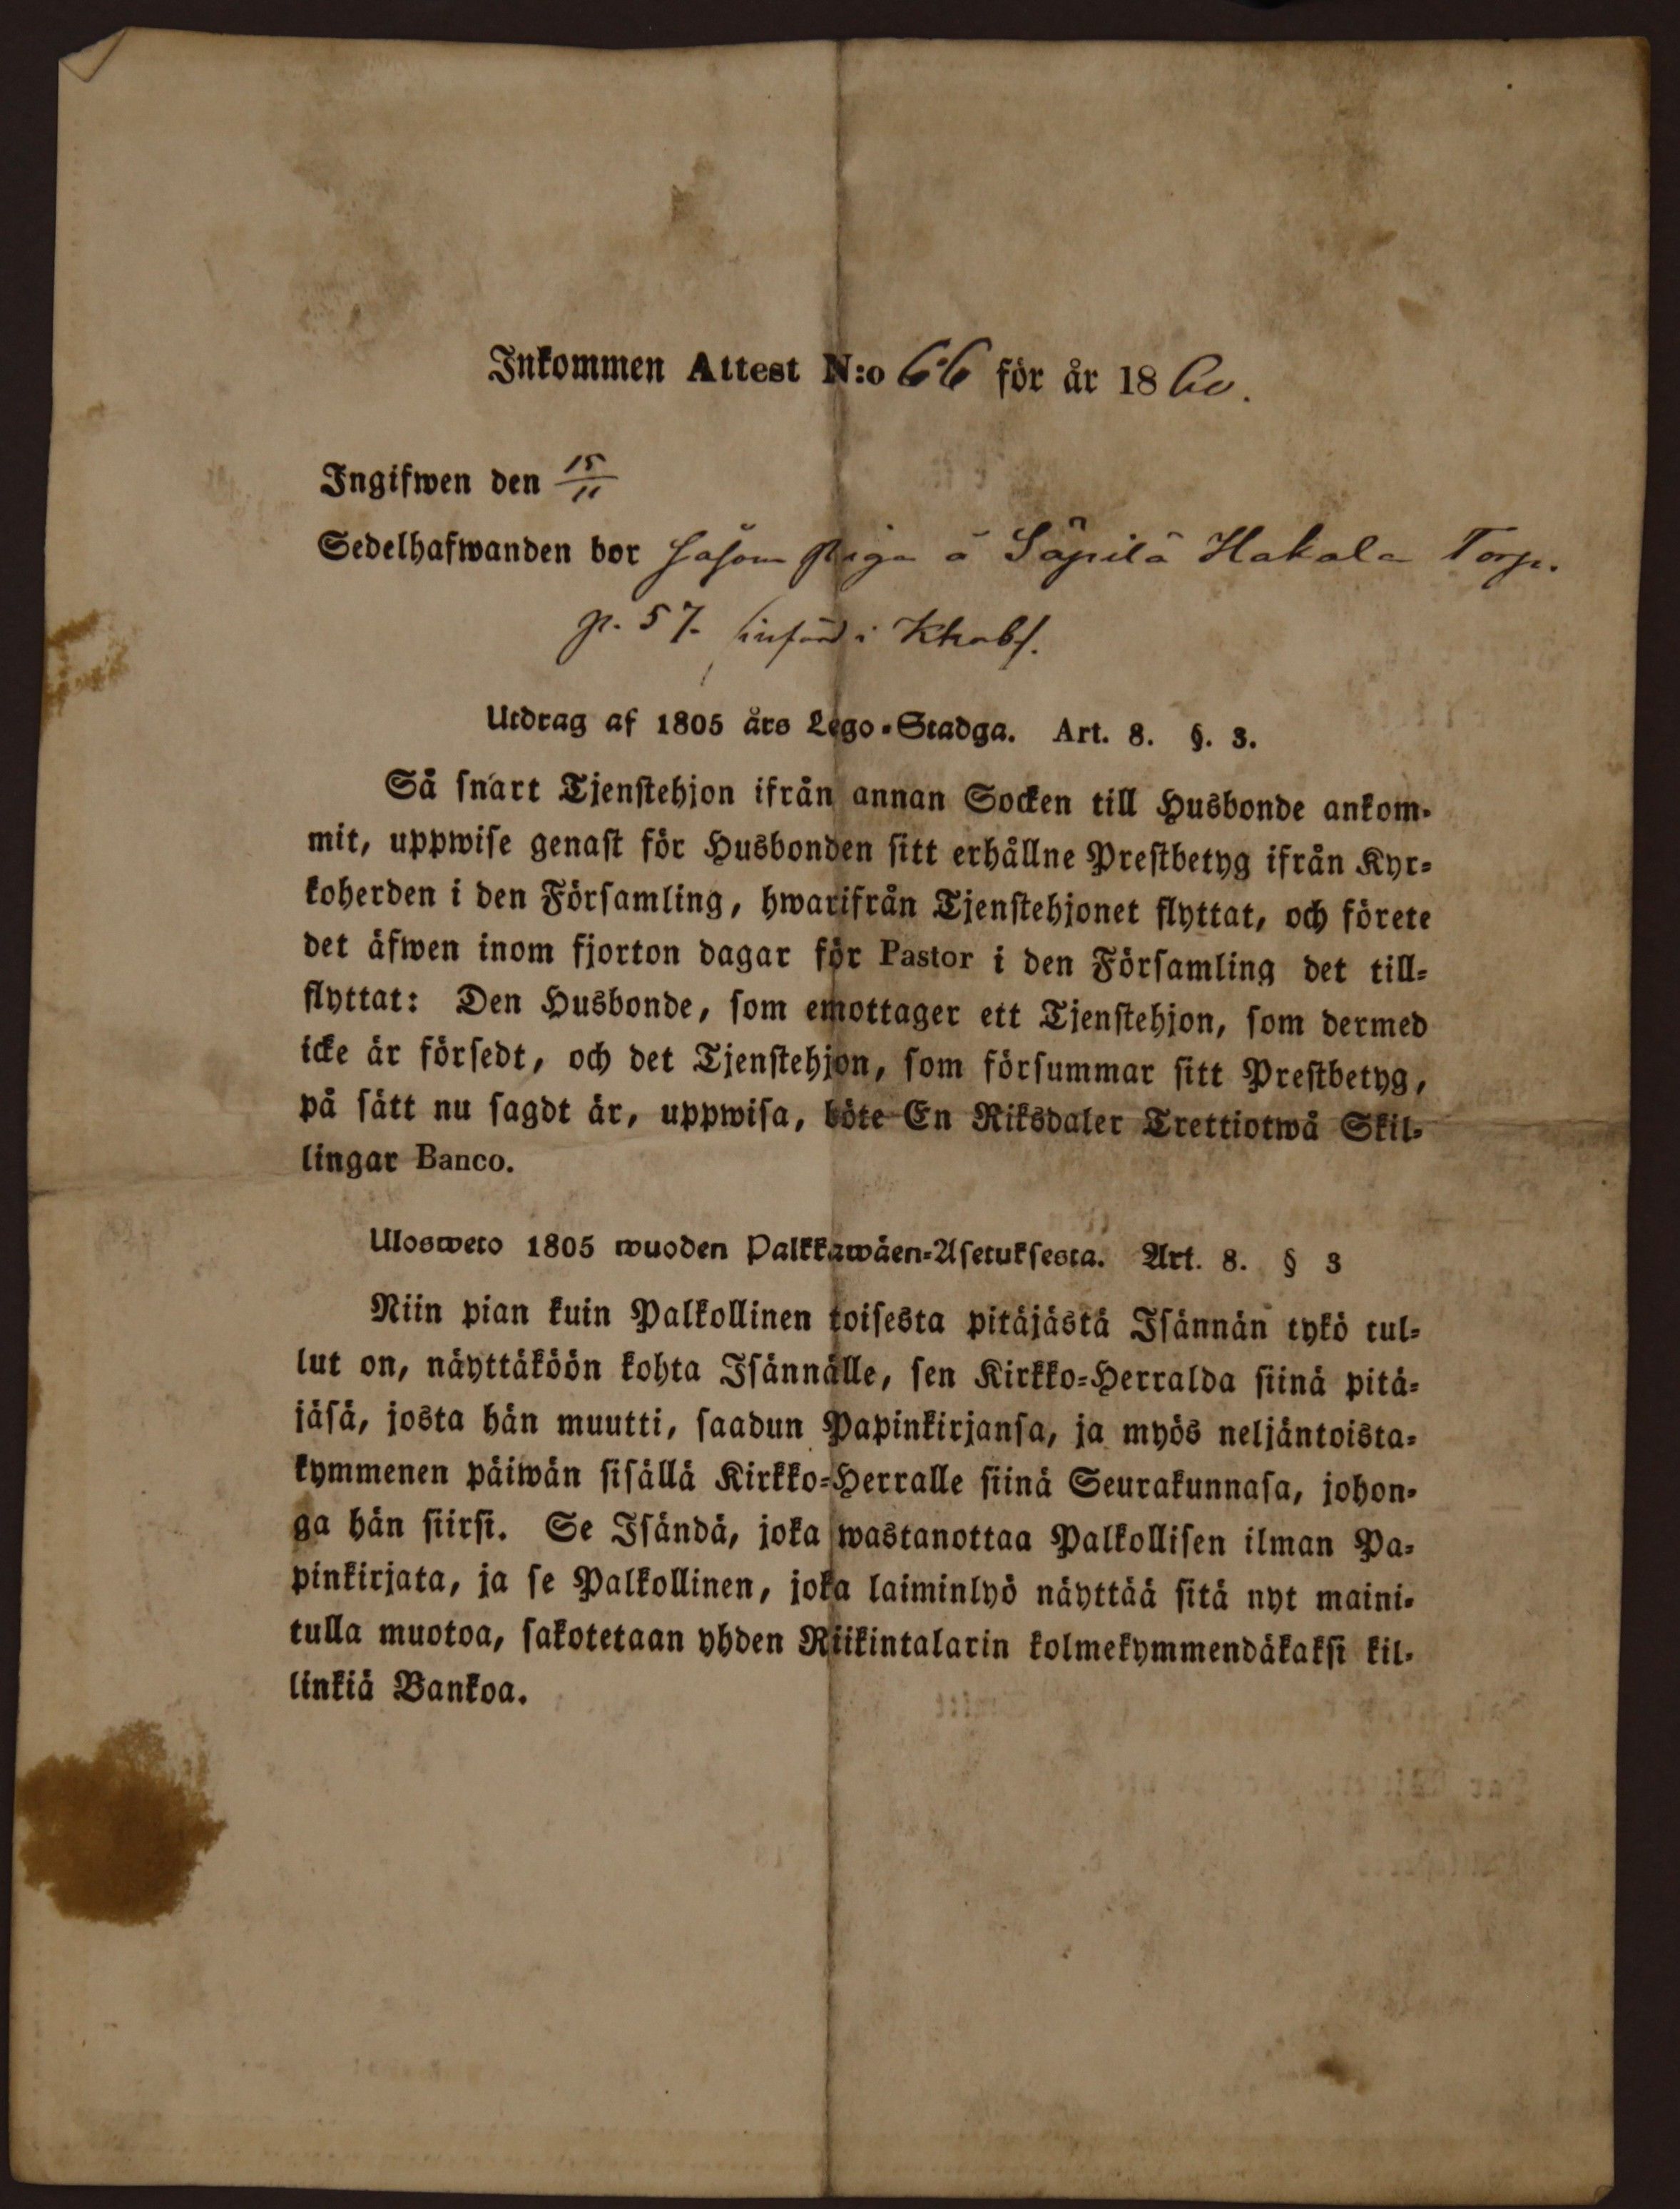 Inkommen Attest N:o 66 för år 1860.
Ingifwen den 15/11
Sedelhafwanden bor såsom piga å Säpilä Hakala Torp.
p. 57. införd i Kkobf.
Utdrag af 1805 års Lego-Stadga. Art. 8. §. 3.
Så snart Tjenstehjon ifrån annan Socken till Husbonde ankom-
mit, uppwise genast för Husbonden sitt erhållne Prestbetyg ifrån Kyr-
koherden i den Församling, hwarifrån Tjenstehjonet flyttat, och förete
det äfwen inom fjorton dagar för Pastor i den Församling det till-
flyttat: Den Husbonde, som emottager ett Tjenstehjon, som dermed
icke är försedt, och det Tjenstehjon, som försummar sitt Prestbetyg,
på sätt nu sagdt är, uppwisa, böte En Riksdaler Trettiotwå Skil-
lingar Banco.
Ulosweto 1805 wuoden Palkkawäen-Asetuksesta. Art. 8. § 3
Niin pian kuin Palkollinen toisesta pitäjästä Isännän tykö tul-
lut on, näyttäköön kohta Isännälle, sen Kirkko-Herralda siinä pitä-
jäsä, josta hän muutti, saadun Papinkirjansa, ja myös neljäntoista-
kymmenen päiwän sisällä Kirkko-Herralle siinä Seurakunnasa, johon-
ga hän siirsi. Se Isändä, joka wastanottaa Palkollisen ilman Pa-
pinkirjata, ja se Palkollinen, joka laiminlyö näyttää sitä nyt maini-
tulla muotoa, sakotetaan yhden Riikintalarin kolmekymmendäkaksi kil-
linkiä Bankoa.